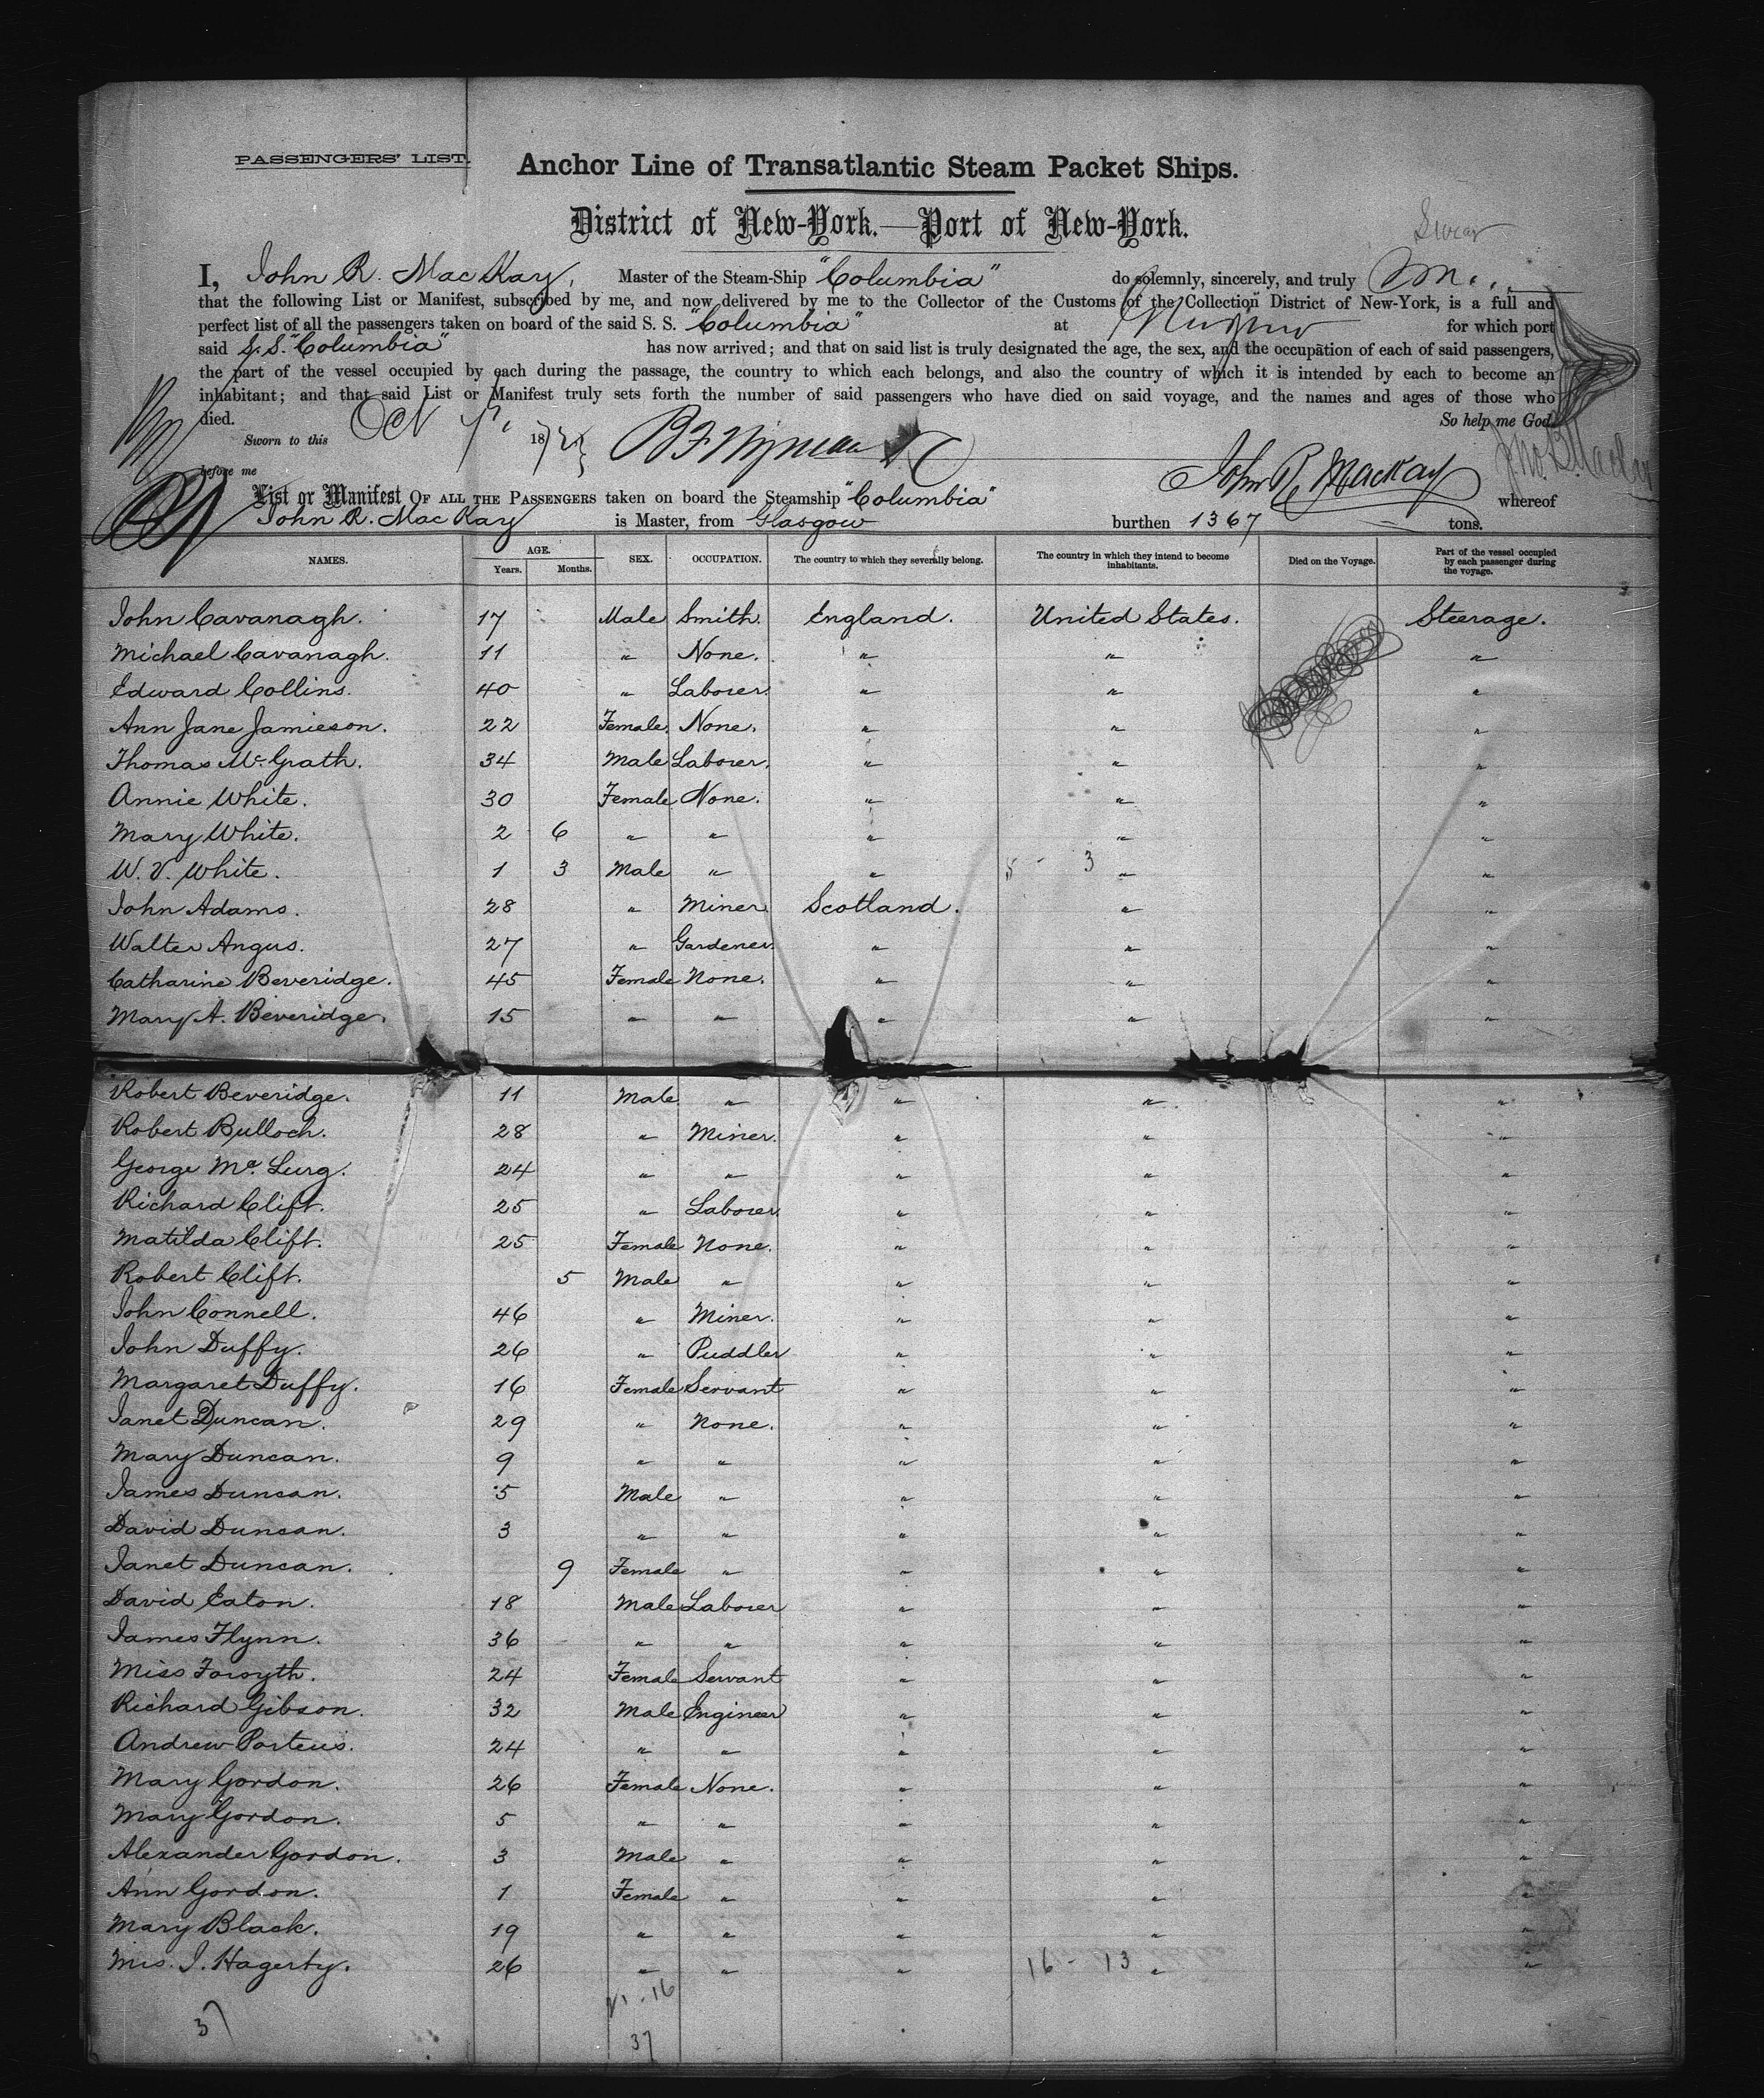 PASSENGERS' LIST.
Anchor Line of Transatlantic Steam Packet Ships.
District of New-York.—Port of New-York.
Swear
I, John R. Mac Kay, Master of the Steam-Ship "Columbia" do solemnly, sincerely, and truly
that the following List or Manifest, subscribed by me, and now delivered by me to the Collector of the Customs of the Collection District of New-York, is a full and
perfect list of all the passengers taken on board of the said S. S. "Columbia" at for which port
said S.S. "Columbia" has now arrived; and that on said list is truly designated the age, the sex, and the occupation of each of said passengers,
the part of the vessel occupied by each during the passage, the country to which each belongs, and also the country of which it is intended by each to become an
inhabitant; and that said List or Manifest truly sets forth the number of said passengers who have died on said voyage, and the names and ages of those who
died. So help me God.
Sworn to this Oct 18
before me John R. Mackay
List or Manifest OF ALL THE PASSENGERS taken on board the Steamship "Columbia" whereof
John R. Mac Kay is Master, from Glasgow burthen 1367 tons.
NAMES. AGE. Years. Months. SEX. OCCUPATION. The country to which they severally belong. The country in which they intend to become inhabitants. Died on the Voyage. Part of the vessel occupied by each passenger during the voyage.
John Cavanagh. 17 Male Smith. England. United States. Steerage.
Michael Cavanagh. 11 " None. " " "
Edward Collins. 40 " Laborer. " " "
Ann Jane Jamieson. 22 Female. None. " " "
Thomas Mc. Grath. 34 Male Laborer. " " "
Annie White. 30 Female None. " " "
Mary White. 2 6 " " " " "
W. V. White. 1 3 Male " " 5 - 3 " "
John Adams. 28 " Miner. Scotland. " "
Walter Angus. 27 " Gardener. " " "
Catharine Beveridge. 45 Female None. " " "
Mary A. Beveridge. 15 " " " " "
Robert Beveridge. 11 Male " " " "
Robert Bulloch. 28 " Miner. " " "
George Mc. Lurg. 24 " " " " "
Richard Clift. 25 " Laborer. " " "
Matilda Clift. 25 Female None. " " "
Robert Clift. 5 Male " " " "
John Connell. 46 " Miner. " " "
John Duffy. 26 " Puddler " " "
Margaret Duffy. 16 Female Servant " " "
Janet Duncan. 29 " None. " " "
Mary Duncan. 9 " " " " "
James Duncan. 5 Male " " " "
David Duncan. 3 " " " " "
Janet Duncan. 9 Female " " " "
David Eaton. 18 Male Laborer " " "
James Flynn. 36 " " " " "
Miss Forsyth. 24 Female Servant " " "
Richard Gibson. 32 Male Engineer " " "
Andrew Porteus. 24 " " " " "
Mary Gordon. 26 Female None. " " "
Mary Gordon. 5 " " " " "
Alexander Gordon. 3 Male " " " "
Ann Gordon. 1 Female " " " "
Mary Black. 19 " " " " "
Mrs. J. Hagerty. 26 " " " 16 - 13 " "
21 - 16
37 37